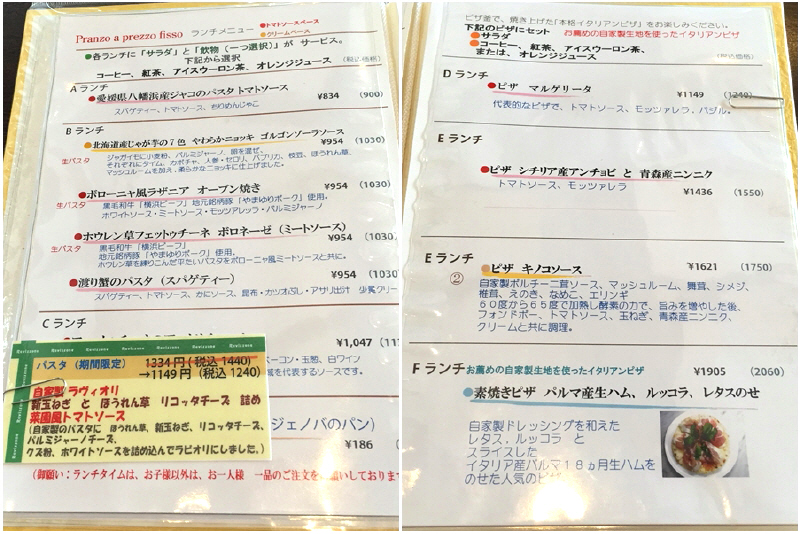 Pranzo a prezzo fisso ランチメニュー
●トマトソースベース
●クリームベース
●各ランチに「サラダ」と「飲物（一つ選択）」が サービス。
下記から選択
コーヒー、紅茶、アイスウーロン茶、オレンジジュース (税込価格)
Aランチ
●愛媛県八幡浜産ジャコのパスタ トマトソース ¥834 (900)
スパゲティー、トマトソース、ちりめんじゃこ
B ランチ
●北海道産じゃが芋の7色 やわらかニョッキ ゴルゴンゾーラソース
¥954 (1030)
生パスタ
ジャガイモに小麦粉、パルミジャーノ、卵を混ぜ、
それぞれにタイム、カボチャ、人参・セロリ、パプリカ、枝豆、ほうれん草、
マッシュルームを加え、柔らかなニョッキに仕上げました。
●ボローニャ風ラザニア オーブン焼き ¥954 (1030)
生パスタ
黒毛和牛「横浜ビーフ」地元銘柄豚「やまゆりポーク」使用。
ホワイトソース・ミートソース・モッツァレッラ・パルミジャーノ
●ホウレン草フェットゥチーネ ボロネーゼ（ミートソース）
¥954 (1030)
生パスタ
黒毛和牛「横浜ビーフ」
地元銘柄豚「やまゆりポーク」使用。
ホウレン草を練りこんだ平たいパスタをボローニャ風ミートソースと共に。
●渡り蟹のパスタ（スパゲティー） ¥954 (1030)
スパゲティー、トマトソース、かにソース、昆布・カツオぶし・アサリ出汁
C ランチ
¥1,047
ベーコン・玉葱、白ワイン
を代表するソースです。
パスタ（期間限定） 1334円（税込 1440）
→1149円（税込 1240）
自家製 ラヴィオリ
新玉ねぎ と ほうれん草 リコッタチーズ 詰め
菜園風トマトソース
（自家製のパスタに ほうれん草、新玉ねぎ、リコッタチーズ、
パルミジャーノチーズ、
クズ粉、ホワイトソースを詰め込んでラビオリにしました。）
ジェノバのパン）
¥186
（御願い：ランチタイムは、お子様以外は、お一人様 一品のご注文をお願いしております
ピザ釜で、焼き上げた「本格イタリアンピザ」をお楽しみください。
下記のピザにセット お薦めの自家製生地を使ったイタリアンピザ
●サラダ
●コーヒー、紅茶、アイスウーロン茶、
または、オレンジジュース (税込価格)
D ランチ
●ピザ マルゲリータ ¥1149 (1240)
代表的なピザで、トマトソース、モッツァレラ、バジル。
E ランチ
●ピザ シチリア産アンチョビ と 青森産ニンニク
トマトソース、モッツァレラ ¥1436 (1550)
E ランチ
②
●ピザ キノコソース ¥1621 (1750)
自家製ポルチーニ茸ソース、マッシュルーム、舞茸、シメジ、
椎茸、えのき、なめこ、エリンギ
60度から65度で加熱し酵素の力で、旨みを増やした後、
フォンドボー、トマトソース、玉ねぎ、青森産ニンニク、
クリームと共に調理。
F ランチ お薦めの自家製生地を使ったイタリアンピザ ¥1905 (2060)
●素焼きピザ パルマ産生ハム、ルッコラ、レタスのせ
自家製ドレッシングを和えた
レタス，ルッコラ と
スライスした
イタリア産パルマ18ヵ月生ハムを
のせた人気のピザ